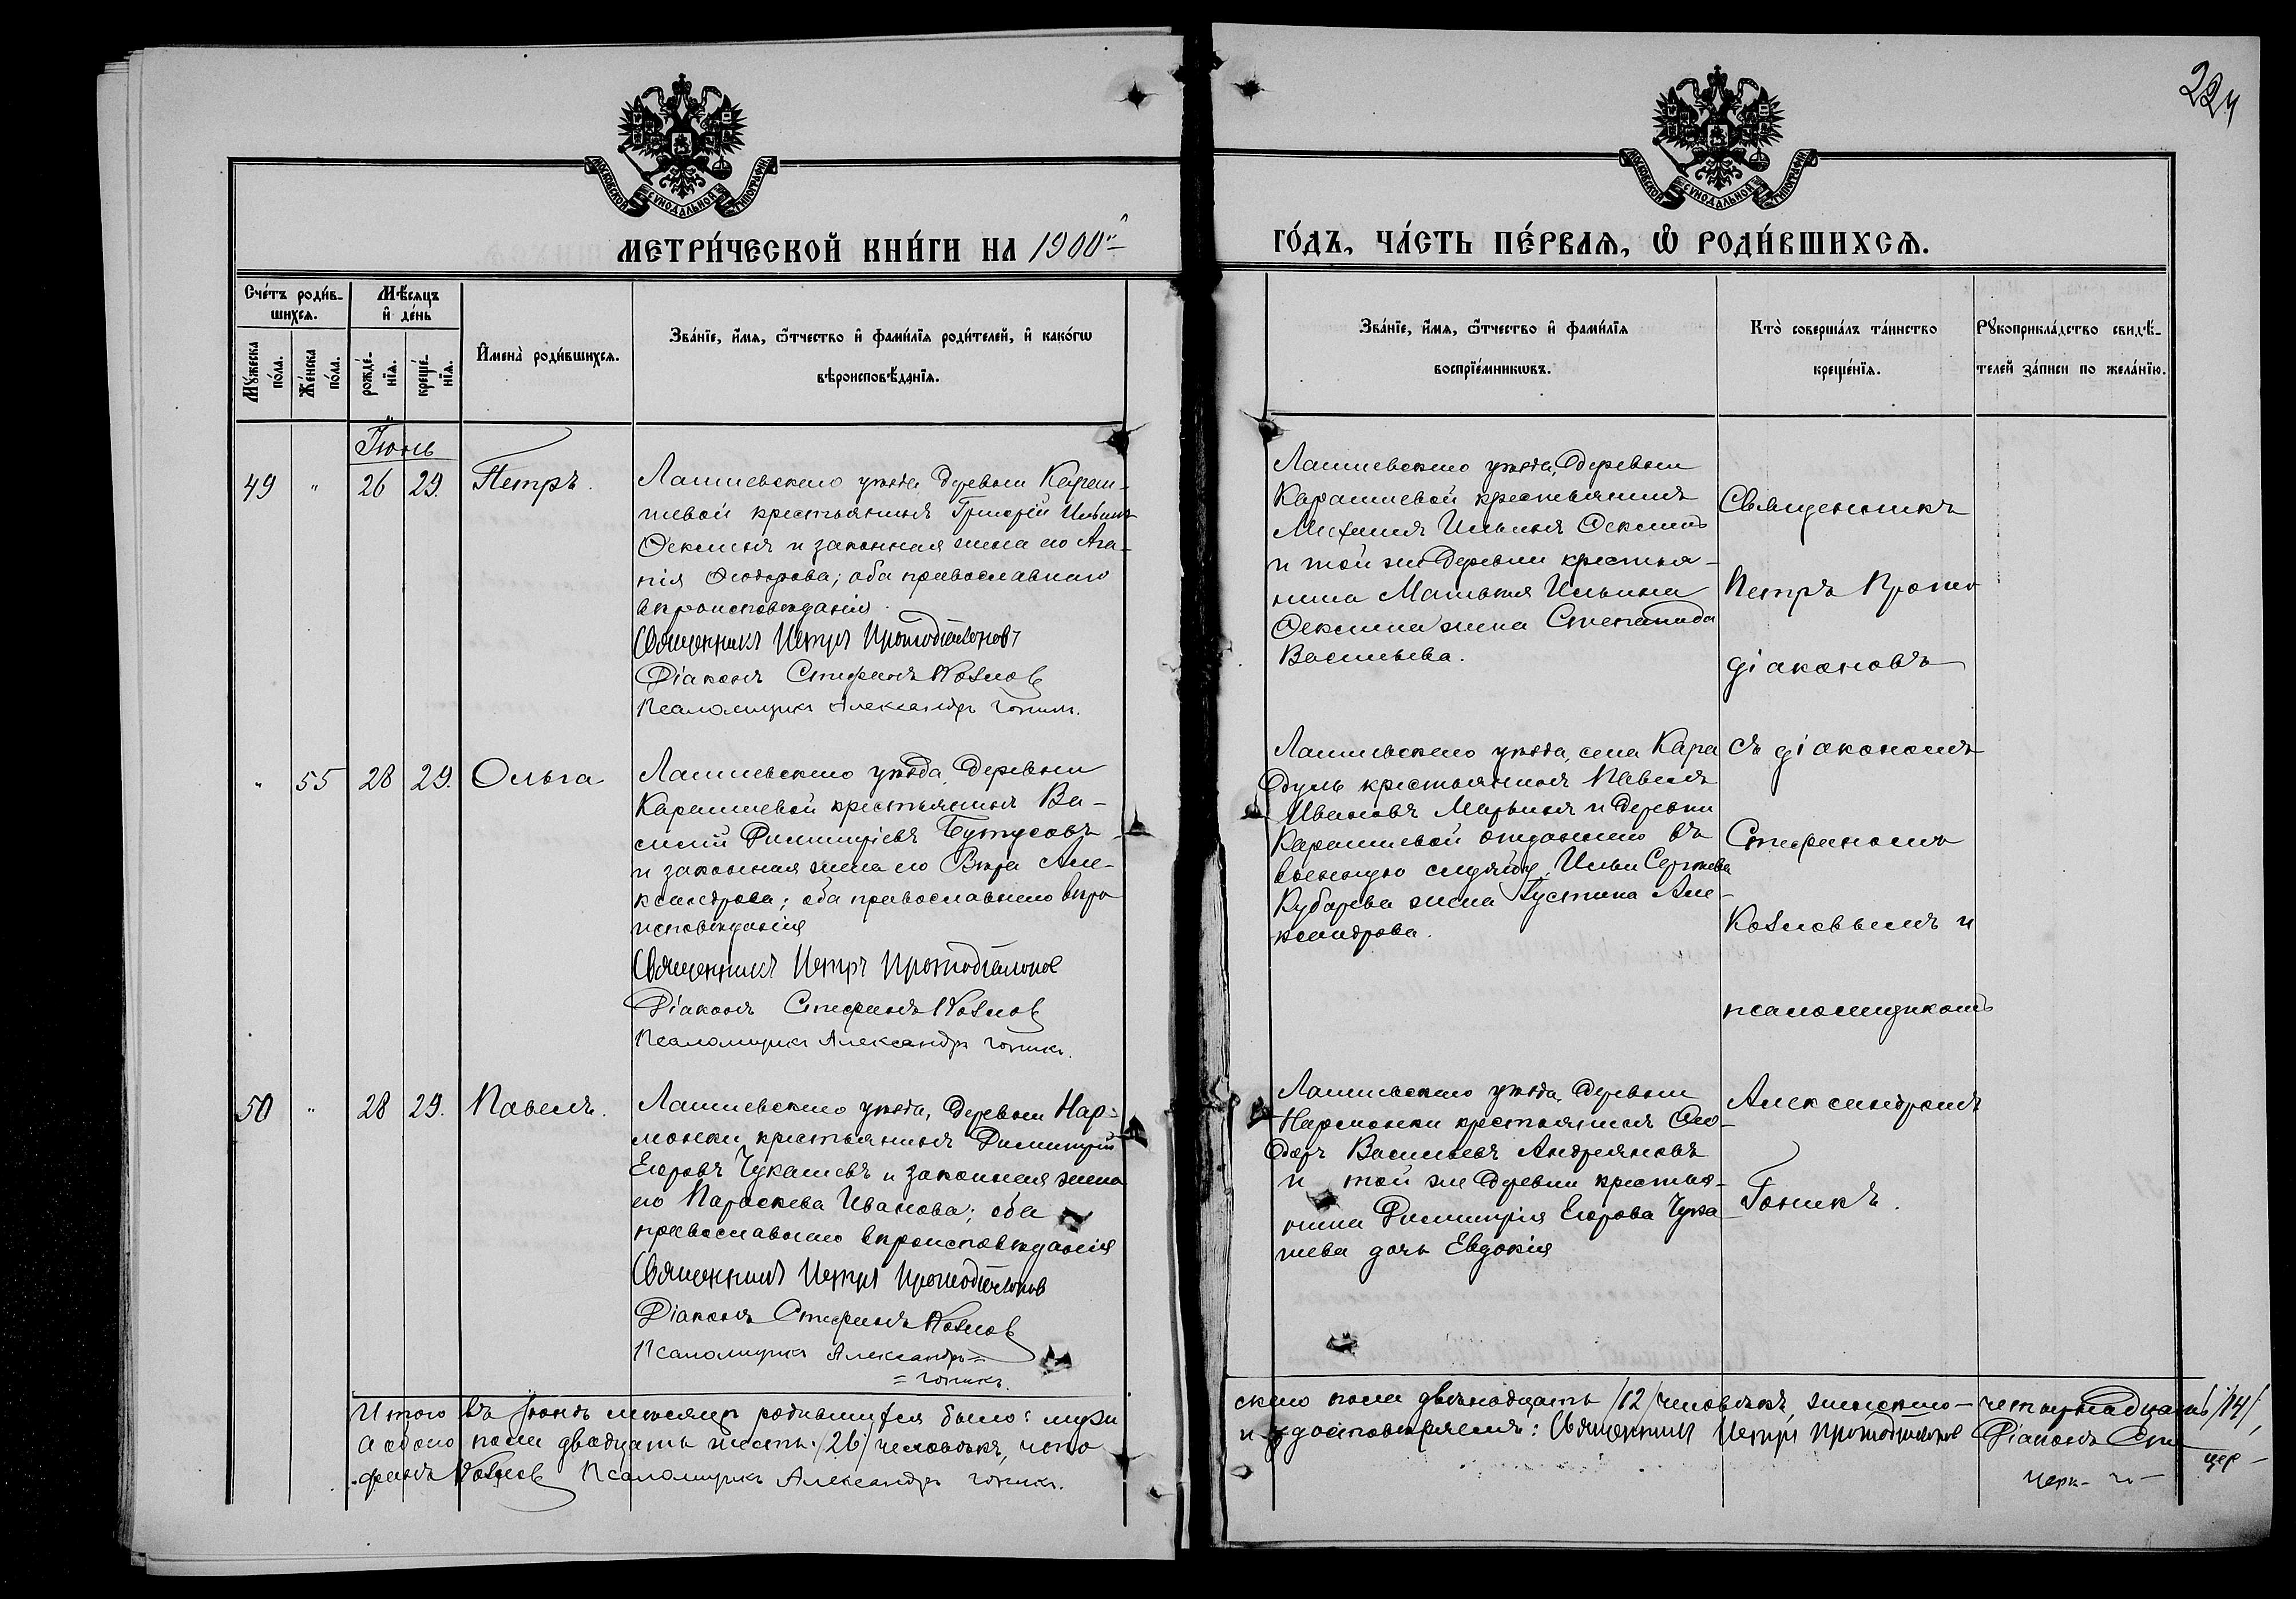 224
МОСКОВСКОЙ СѴНОДАЛЬНОЙ ТИПОГРАФІИ
МОСКОВСКОЙ СѴНОДАЛЬНОЙ ТИПОГРАФІИ
МЕТРИ́ЧЕСКОЙ КНИ́ГИ НА 1900й
ГО́ДЪ, ЧА́СТЬ ПЕ́РВАѦ, Ѽ РОДИ́ВШИХСѦ.
Сче́тъ роди́в-
шихсѧ.
Мѣ́сѧцъ
и҆ де́нь
Мꙋ́жеска
по́ла.
Же́нска
по́ла.
рожде́-
нїѧ.
креще́-
нїѧ.
И҆мена̀ роди́вшихсѧ.
Зва́нїе, и҆́мѧ, ѻ҆́тчество и҆ фамі́лїѧ роди́телей, и҆ како́гѡ
вѣроисповѣ́данїѧ.
Зва́нїе, и҆́мѧ, ѻ҆́тчество и҆ фамі́лїѧ
воспрїе́мникѡвъ.
Кто̀ соверша́лъ та́инство
креще́нїѧ.
Рꙋкоприкла́дство свидѣ́-
телей за́писи по жела́нїю.
Іюнь
49 " 26 29. Петръ.
Лаишевскаго уѣзда деревни Караи-
шевой крестьянинъ Григорій Ильинъ
Ѳеклинъ и законная жена его Ага-
пія Ѳеодорова; оба православнаго
вѣроисповѣданія.
Священникъ Петръ Протодіаконовъ
Діаконъ Стефанъ Козловъ
Псаломщикъ Александръ Гоникъ.
Лаишевскаго уѣзда, деревни
Караишевой крестьянинъ
Михаилъ Ильинъ Ѳеклинъ
и той же деревни крестья-
нина Матвѣя Ильина
Ѳеклина жена Степанида
Васильева.
" 55 28 29. Ольга
Лаишевскаго уѣзда, деревни
Караишевой крестьянинъ Ва-
силій Димитріевъ Бутусовъ
и законная жена его Вѣра Але-
ксандрова; оба православнаго вѣро
исповѣданія
Священникъ Петръ Протодіаконовъ
Діаконъ Стефанъ Козловъ
Псаломщикъ Александръ Гоникъ.
Лаишевскаго уѣзда, села Кара
дуль крестьянинъ Павелъ
Ивановъ Марьинъ и деревни
Караишевой отданнаго въ
военную службу Ильи Сергѣева
Кубарева жена Іустина Але-
ксандрова.
50 " 28 29. Павелъ.
Лаишевскаго уѣзда, деревни Нар-
монки крестьянинъ Димитрій
Егоровъ Чукашевъ и законная жена
его Параскева Иванова; оба
православнаго вѣроисповѣданія
Священникъ Петръ Протодіаконовъ
Діаконъ Стефанъ Козловъ
Псаломщикъ Александръ =
= Гоникъ.
Лаишевскаго уѣзда, деревни
Нармонки крестьянинъ Ѳео-
доръ Васильевъ Андреяновъ
и той же деревни крестья-
нина Димитрія Егорова Чука
шева дочь Евдокія
Священникъ
Петръ Прото
діаконовъ
съ діакономъ
Стефаномъ
Козловымъ и
псаломщикомъ
Александромъ
Гоникъ.
Итого въ Іюнѣ мѣсяцѣ родившихся было: муже
скаго пола двѣнадцать /12/ человѣкъ, женскаго - четырнадцать /14/,
а обоего пола двадцать шесть /26/ человѣкъ, что
и удостовѣряемъ: Священникъ Петръ Протодіаконовъ Діаконъ Сте
фанъ Козловъ Псаломщикъ Александръ Гоникъ.